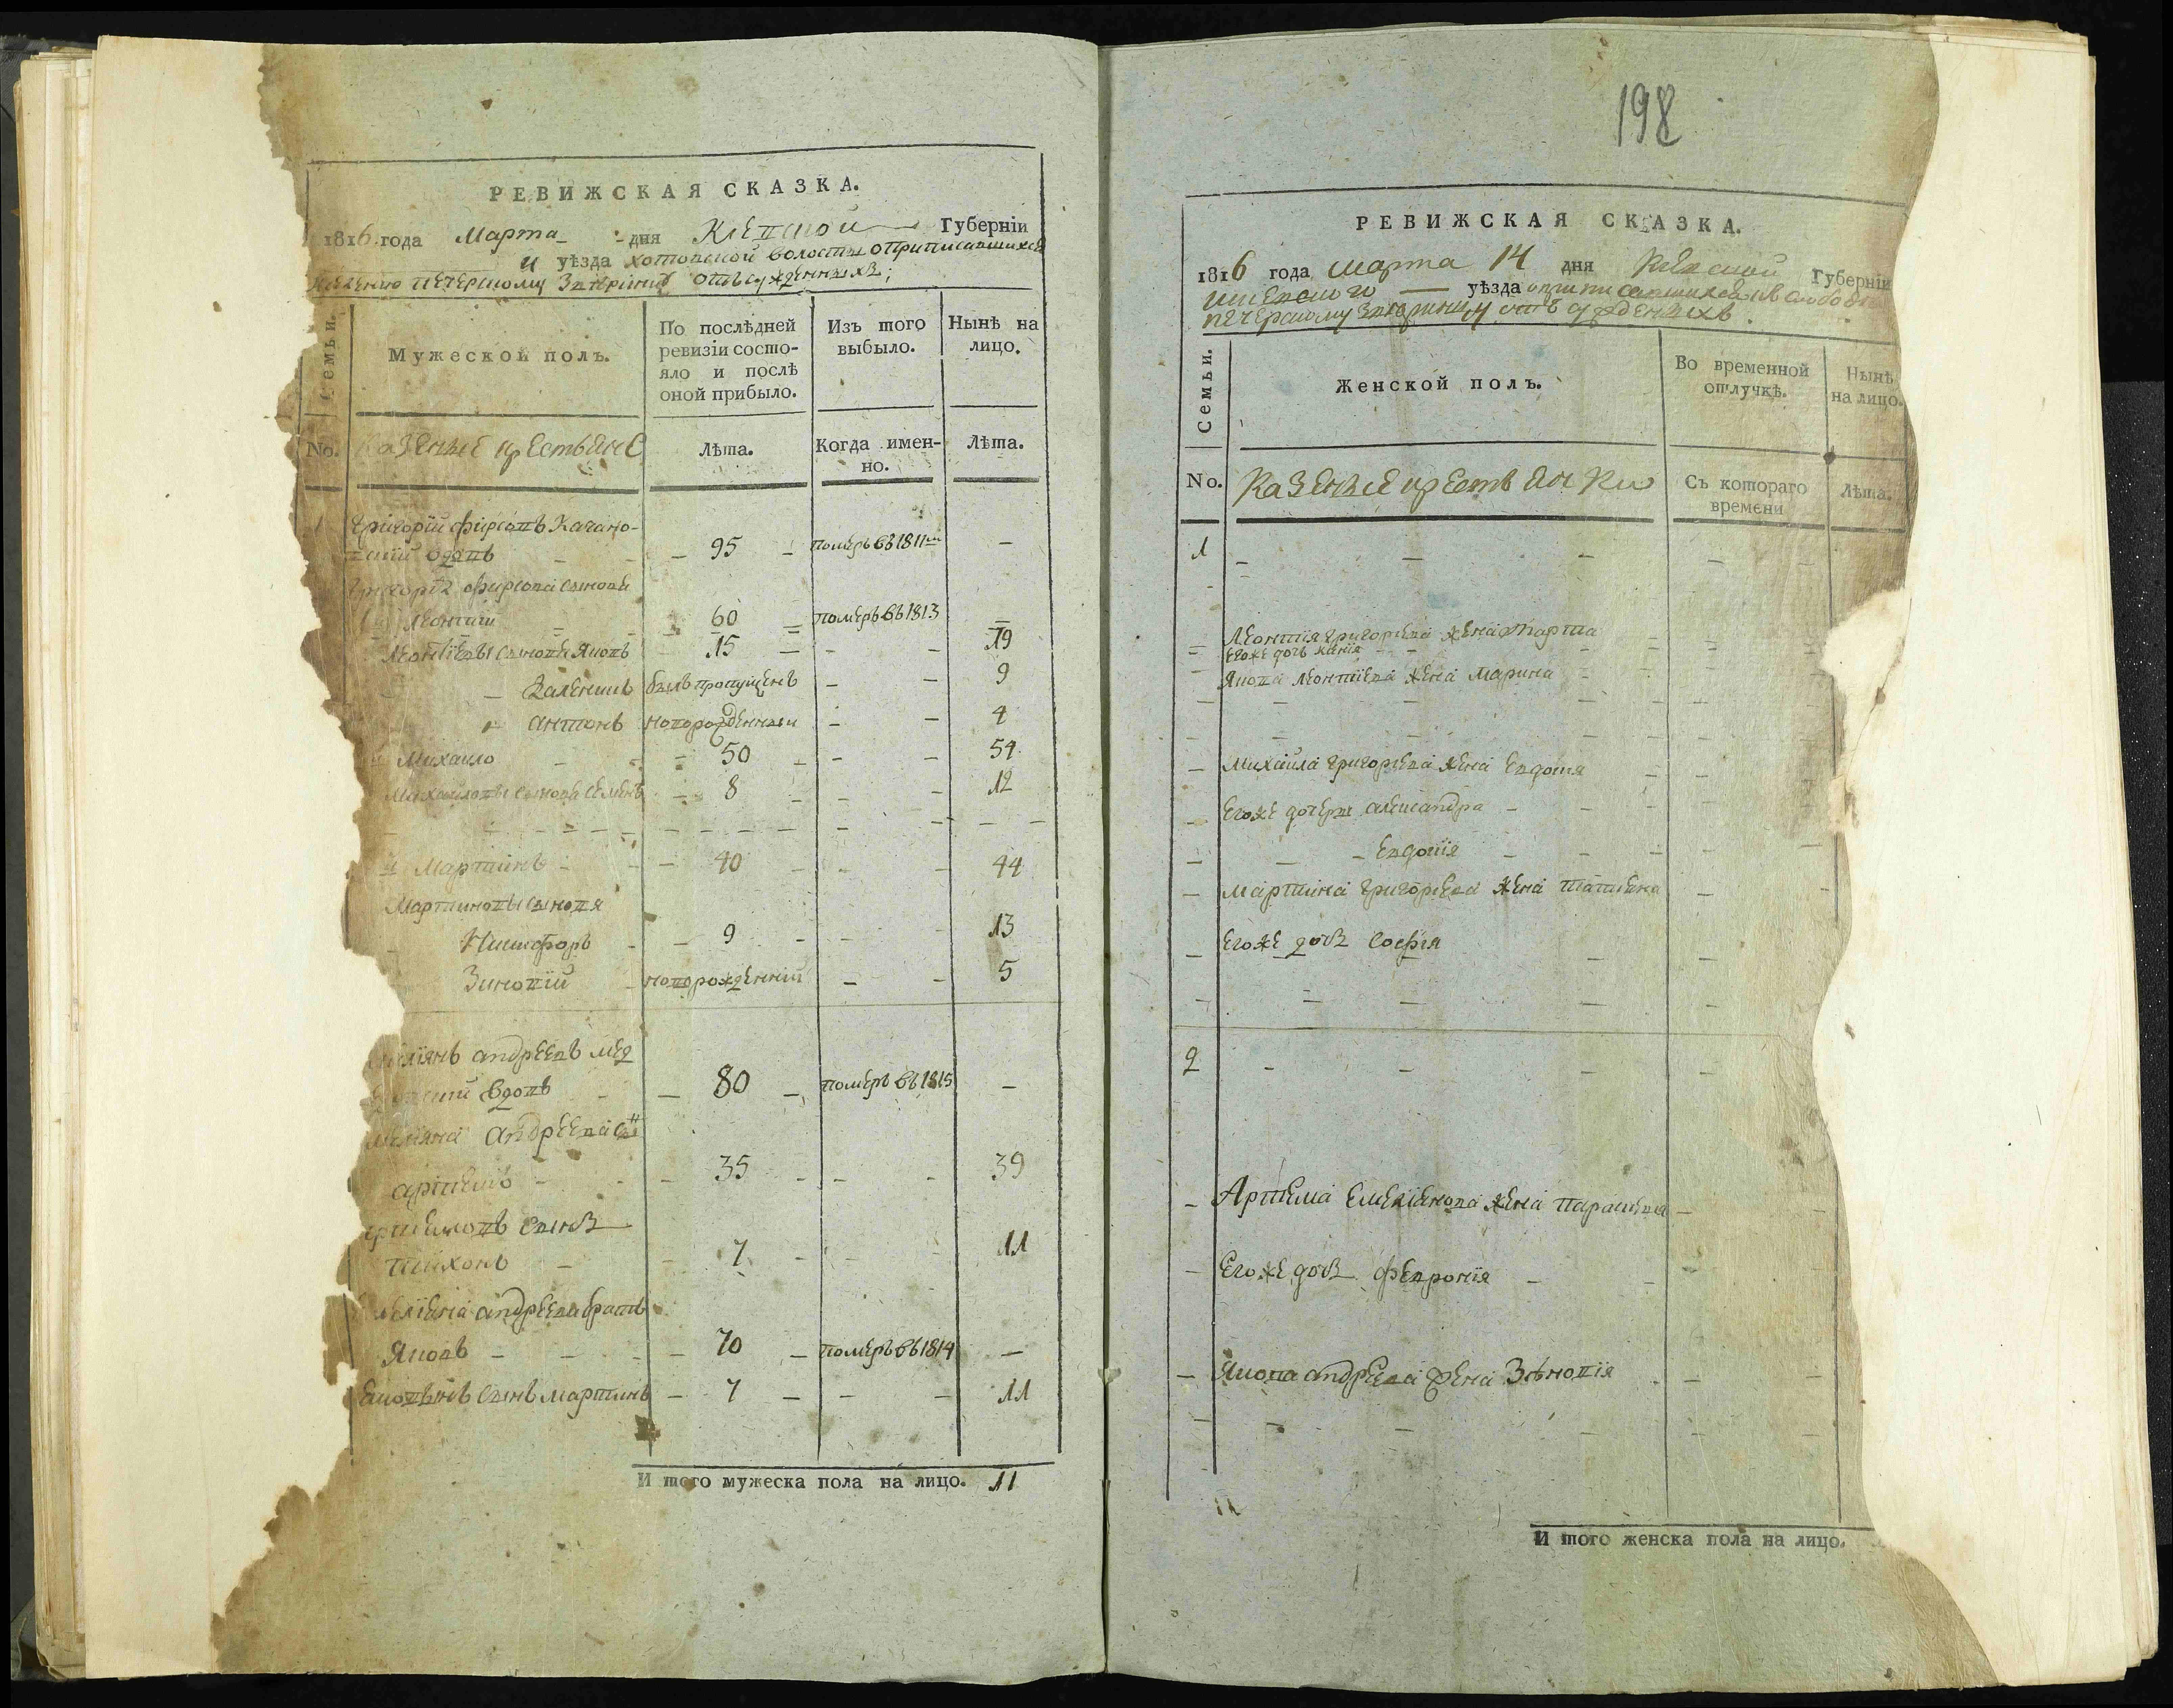 РЕВИЖСКАЯ СКАЗКА.
1816 года Марта дня Кіевской Губерніи
уѣзда хотовской волости о приписавшихся
печерскому Звѣринцу отъсужденныхъ;
Семьи.
Мужеской полъ.
По послѣдней ревизіи состо-
яло и послѣ
оной прибыло.
Изъ того
выбыло.
Нынѣ на
лицо.
No.
Казенніе крестьяне
Лѣта.
Когда имен-
но.
Лѣта.
1 Григорій фирсовъ Качано-
вскій вдовъ - 95 - померъ въ 1811м -
Григорія фирсова синовя
Леонтій - 60 - померъ въ 1813 -
Леонтіевы синовя Яковъ - 15 - - 19
Валентинъ былъ пропущенъ - - 9
антонъ новорожденный - - 4
Михаило - 50 - - 54
Михайловы синовя Семенъ - 8 - - 12
Мартинъ - 40 - - 44
Мартиновы синовя
Никифоръ - 9 - - 13
Зиновій новорожденній - - 5
андреевъ мед
вдовъ - 80 - померъ въ 1815 -
андреева
артемъ - 35 - - 39
артемовъ синъ
тихонъ - 7 - - 11
Емеліяна андреева братъ
Яковъ - 70 - померъ въ 1814 -
Яковвѣнъ синъ мартинъ - 7 - - 11
И того мужеска пола на лицо. 11
198
РЕВИЖСКАЯ СКАЗКА.
1816 года марта 14 дня Кіевской Губерніи
кіевского уѣзда о приписавшихся к слободѣ
печерскому Звѣринцу отъ сужденныхъ.
Семьи.
Женской полъ.
Во временной
отлучкѣ.
Нынѣ
на лицо.
No.
Казенніе крестьянки
Съ котораго
времени
Лѣта.
1 - - -
Леонтія григорьева жена Марта
Егоже дочь
Якова леонтіева жена Марина
Михаила григорьева жена Евдокия
Егоже дочери александра -
- Евдокія
Мартина григорьева жена татияна
Егоже дочь софія
2 - - -
Артема Емелиянова жена параскева -
Егоже дочь февронія -
Якова андреева жена Зѣновія
И того женска пола на лицо.